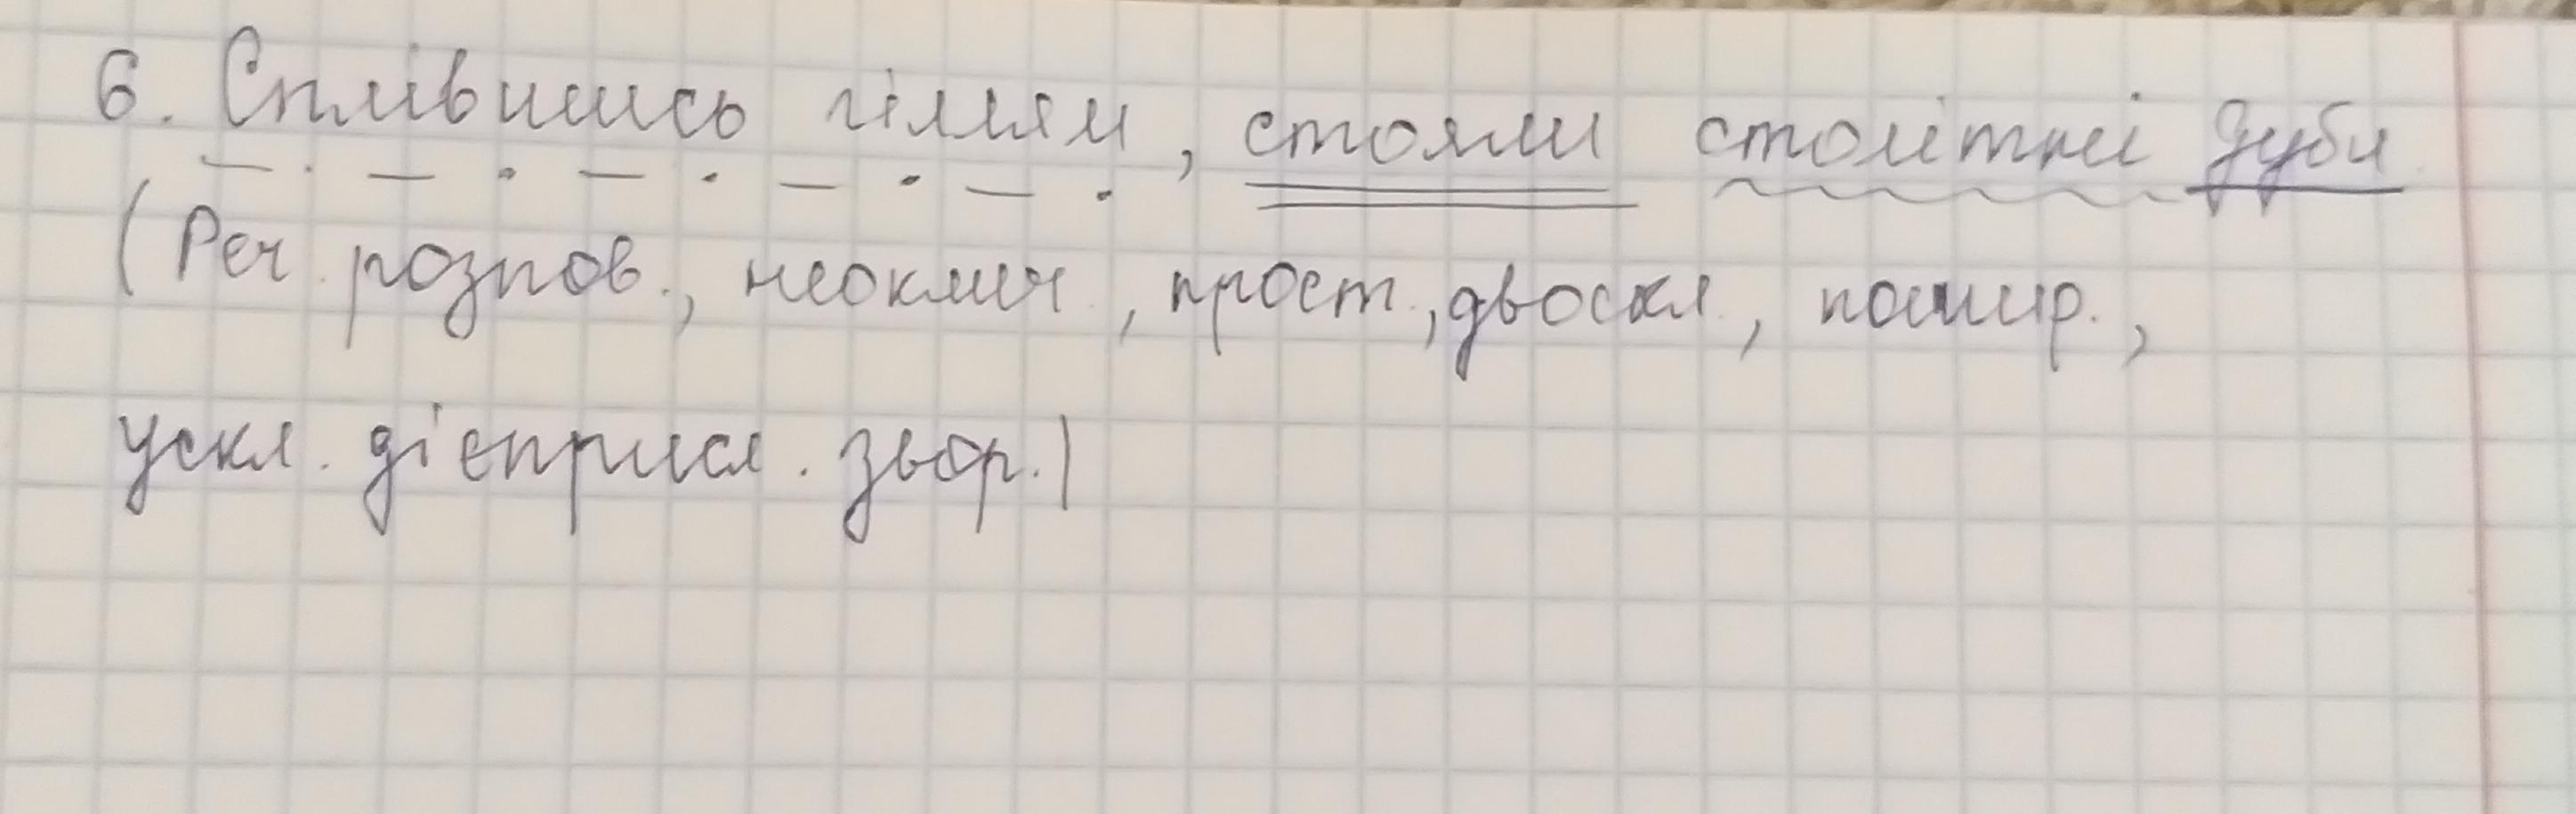 6. Сплівшись гіллям, стояли столітні дуби
(Реч. розпов., неоклич., прост., двоскл., пошир.,
ускл. дієприсл. звор.)